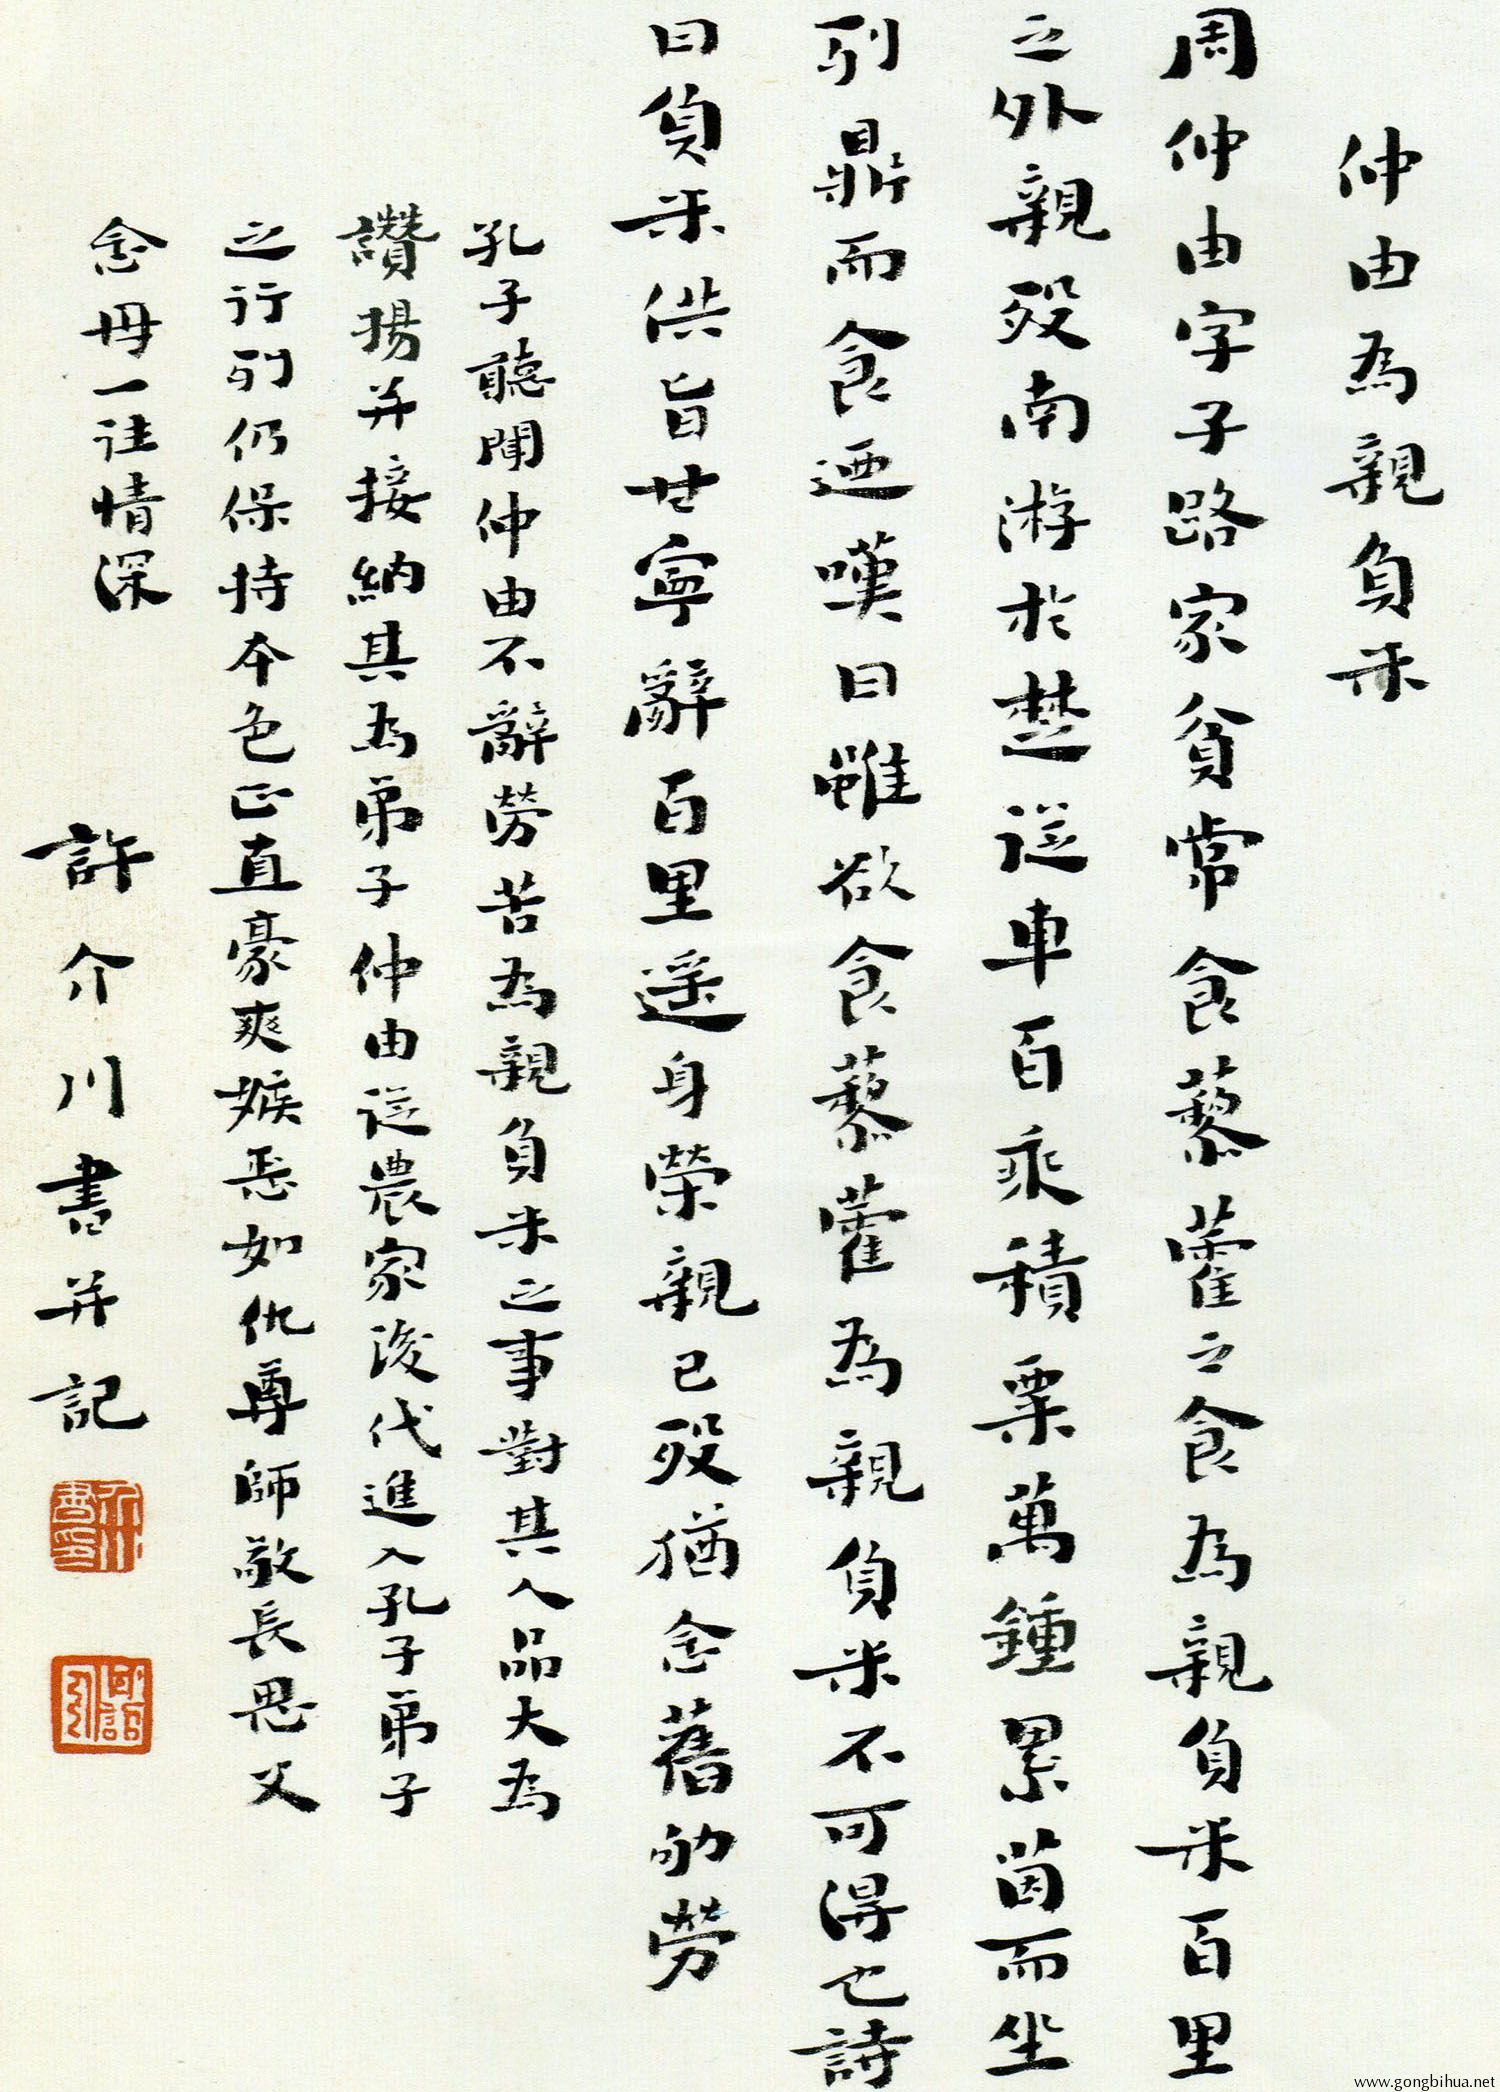 仲由為親負米
周仲由字子路家貧常食藜藿之食為親負米百里
之外親歿南游於楚從車百乘積粟萬鍾累茵而坐
列鼎而食迺嘆曰雖欲食藜藿為親負米不可得也詩
曰負米供旨甘寧辭百里遥身榮親已歿猶念舊劬勞
孔子聽聞仲由不辭勞苦為親負米之事對其人品大為
讚揚并接納其為弟子仲由從農家後代進入孔子弟子
之行列仍保持本色正直豪爽嫉恶如仇尊師敬長思父
念母一往情深
許介川書并記
www.gongbihua.net